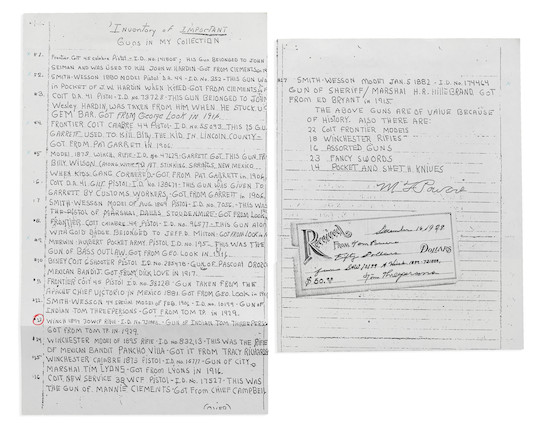 "Inventory of IMPORTANT
GUNS IN MY COLLECTION
Frontier Colt 45 calibre Pistol - I.D. no. 141805; His GUN BELONGED TO JOHN
SELMAN AND WAS USED TO KILL JOHN W. HARDIN - GOT FROM Clements on
SMITH-WESSON 1880 MODEL PISTOL DA. 44 - I.D. no. 352 - THIS GUN WAS
in POCKET OF J.W. HARDIN WHEN KILLED - GOT FROM CLEMENTS in
COLT DA 41 PISTOL - I.D. no. 73728 - THIS GUN BELONGED TO JOHN
Wesley HARDIN, WAS TAKEN FROM HIM WHEN HE STUCK UP
GEM BAR. GOT FROM George Look IN 1914.
FRONTIER COLT CALIBRE 44 PISTOL - I.D. no. 55093 - THIS IS GUN
GARRETT USED TO KILL BILLY THE KID IN LINCOLN COUNTY -
GOT FROM PAT GARRETT IN 1906.
MODEL 1873 WINCH. RIFLE - I.D. no. 47629 - GARRETT GOT THIS GUN FROM
BILLY WILSON
WHEN KIDS GANG CORNERED - GOT FROM PAT GARRETT in 1906.
COLT DA 41 CALIF. PISTOL - I.D. no. 138671 - THIS GUN WAS GIVEN TO
GARRETT BY CUSTOMS WORKERS, - GOT FROM GARRETT IN 1906.
SMITH-WESSON MODEL OF AUG 1869 PISTOL - I.D. no. 7056 - THIS WAS
THE PISTOL OF MARSHAL DALLAS STOUDENMIRE - GOT FROM LOOK
FRONTIER COLT CALIBRE 44 PISTOL - I.D. no. - THIS GUN ALONG
WITH GOLD BADGE BELONGED TO JEFF D. MILTON - GOT FROM LOOK
MERWIN HULBERT POCKET ARMY PISTOL I.D. no. 195 - THIS WAS THE
GUN OF BASS OUTLAW, GOT FROM GEO LOOK IN
BISLEY COLT 6 SHOOTER PISTOL I.D. no. 282978 - GUN OF PASCUAL OROZCO
MEXICAN BANDIT. GOT FROM DIRK LOVE IN 1917.
FRONTIER COLT 45 PISTOL - I.D. no. 38228 - GUN TAKEN FROM THE
APACHE CHIEF VICTORIO IN MEXICO 1881 GOT FROM GEO. LOOK in
#12. SMITH-WESSON 44 SPECIAL MODEL OF FEB. 1906 - I.D. no. 10199 - GUN OF
INDIAN TOM THREEPERSONS - GOT FROM TOM TP IN 1929.
#13 WINCH 1894 30WCF RIFLE - I.D. no. - GUN OF INDIAN TOM THREEPERSONS
GOT FROM TOM TP IN 1929.
#14 WINCHESTER MODEL OF 1895 RIFLE - I.D. no. 83213 - THIS WAS THE RIFLE
OF MEXICAN BANDIT PANCHO VILLA - GOT IT FROM TRACY RICHARDS
WINCHESTER CALIBRE 1873 PISTOL - I.D. no. 16777 - GUN OF CITY
MARSHAL TIM LYONS - GOT FROM LYONS IN 1916.
COLT NEW SERVICE 38 WCF PISTOL - I.D. no. 17327 - THIS WAS
THE GUN OF MANNIE CLEMENTS - GOT FROM CHIEF CAMPBELL
#17 SMITH-WESSON MODEL JAN. 5 1882 - I.D. no. 174464
GUN OF SHERIFF / MARSHAL H.R. HILLEBRAND GOT
FROM ED BRYANT in 1915.
THE ABOVE GUNS ARE OF VALUE BECAUSE
OF HISTORY. ALSO THERE ARE:
22 COLT FRONTIER MODELS
18 WINCHESTER RIFLES
16 ASSORTED GUNS
23 FANCY SWORDS
14 POCKET AND SHETH KNIVES
Received
December 16 1929
FROM Tom Powers
Fifty Dollars DOLLARS
$50.00
Tom Threepersons